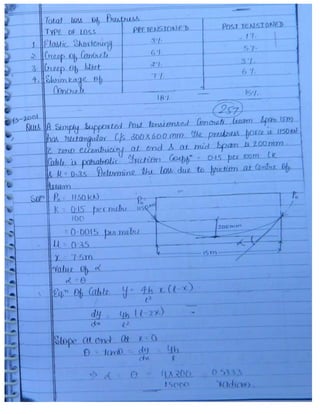 Total loss of Prestress
TYPE OF LOSS PRETENSIONED POST TENSIONED
1 Elastic Shortening 3% 1%
2. Creep of Concrete 6% 5%
3. Creep of Steel 2% 3%
4. Shrinkage of Concrete 7% 6%
18% 15%
(257)
2001
Ques A Simply Supported Post tensioned Concrete beam Span 15m
has rectangular c/s 300x600 mm. The prestress force is 1150kN
& zero eccentricity at end & at mid Span is 200mm
Cable is parabolic friction Coeffn = 0.15 per 100m (K
& μ = 0.35 Determine the loss due to friction at Centre of
beam
Soln P0 = 1150 kN
K = 0.15 per metre
100
= 0.0015 per metre
μ = 0.35
x = 7.5m
Value of α
α = θ
P0
1150
P0
200mm
α
15m
Eqn Of Cable y = 4h x (l-x)
l²
dy = 4h (l-2x)
dx l²
Slope at end at x = 0
θ = tanθ = dy = 4h
dx l
⇒ α = θ = 4x200 = 0.5333
15000 radians